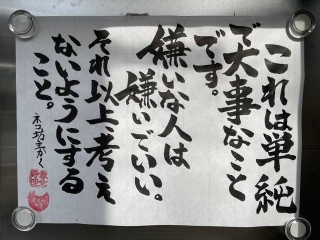 これは単純
で大事なこと
です。
嫌いな人は
嫌いでいい。
それ以上考え
ないようにする
こと。